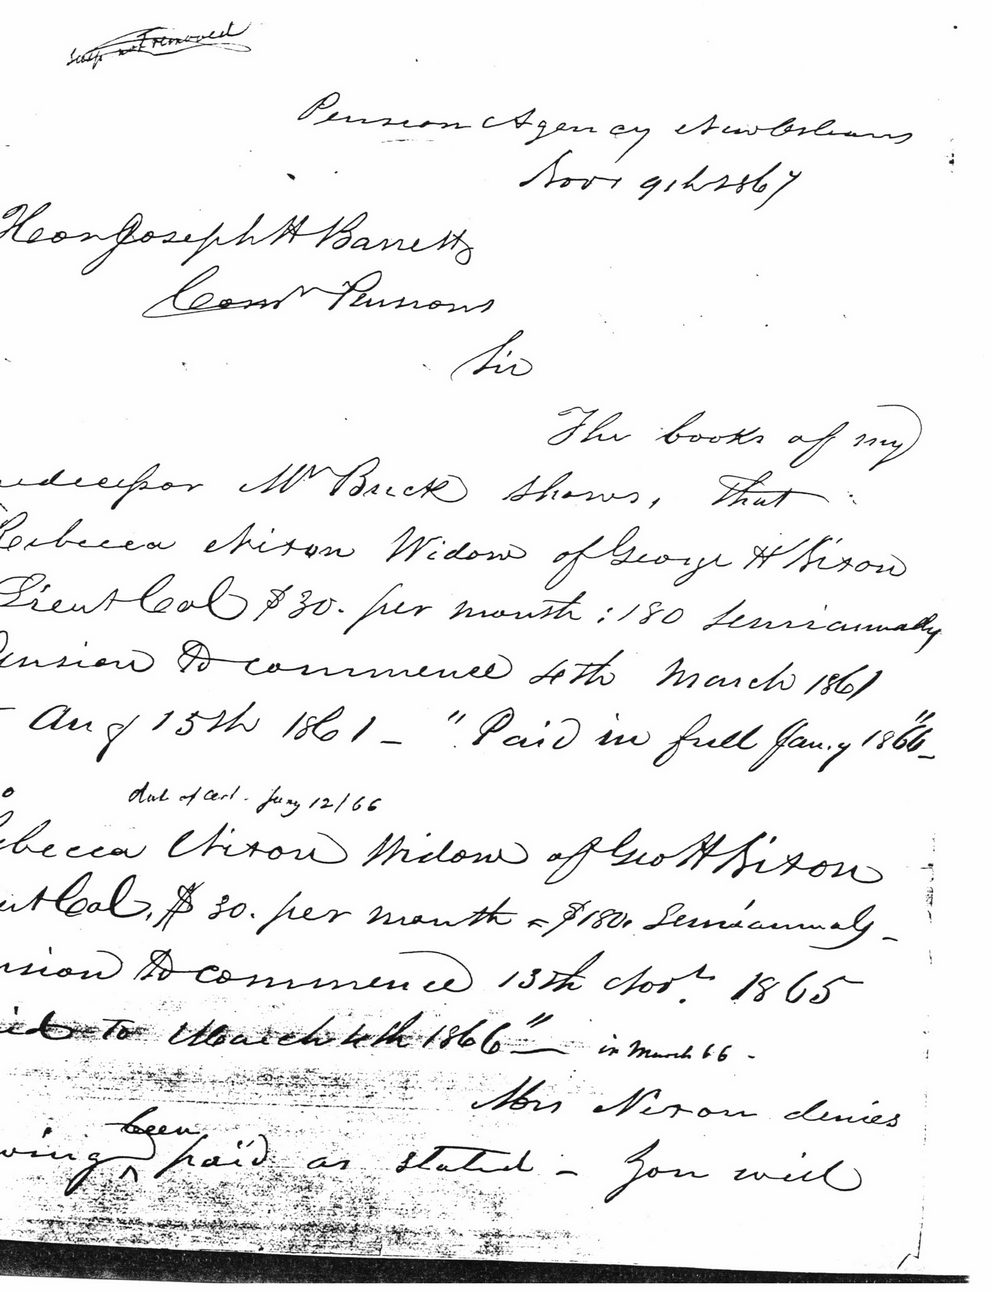 Susp not removed
Pension Agency New Orleans
Novr 9th 1867
Hon Joseph H Barrett
Comr Pensions
Sir
The books of my
edecessor Mr Brick shows, that
Rebecca Nixon Widow of George H Nixon
Lieut Col $30. per month : 180 Semiannually
Pension to commence 4th March 1861
Aug 15th 1861 - "Paid in full Jany 1866" -
o
dat of Cert. Jany 12/66
ebecca Nixon Widow of Geo H Nixon
eut Col, $30. per month = $180. Semiannualy -
nsion to commence 13th Novr. 1865
id to March 4th 1866" - in March 66 -
Mrs Nixon denies
been
ving ^ paid as stated - You will